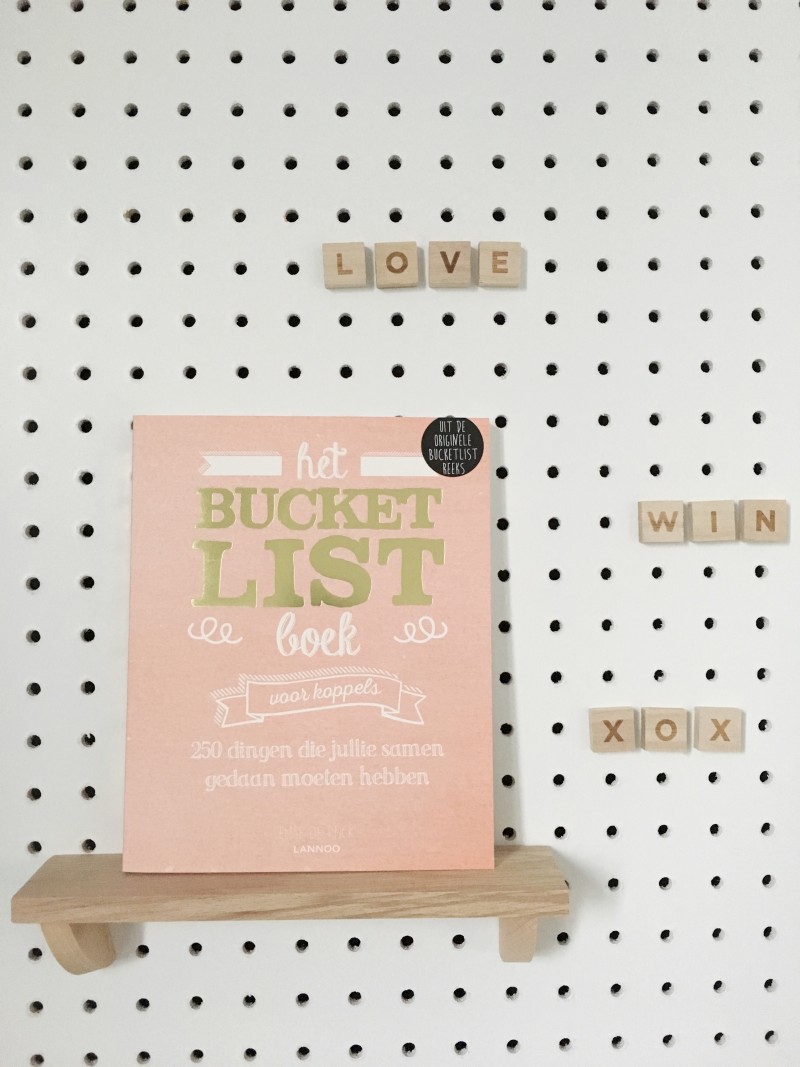 LOVE
UIT DE
ORIGINELE
BUCKETLIST
REEKS
het
BUCKET
LIST
boek
voor koppels
250 dingen die jullie samen
gedaan moeten hebben
LANNOO
WIN
XOX